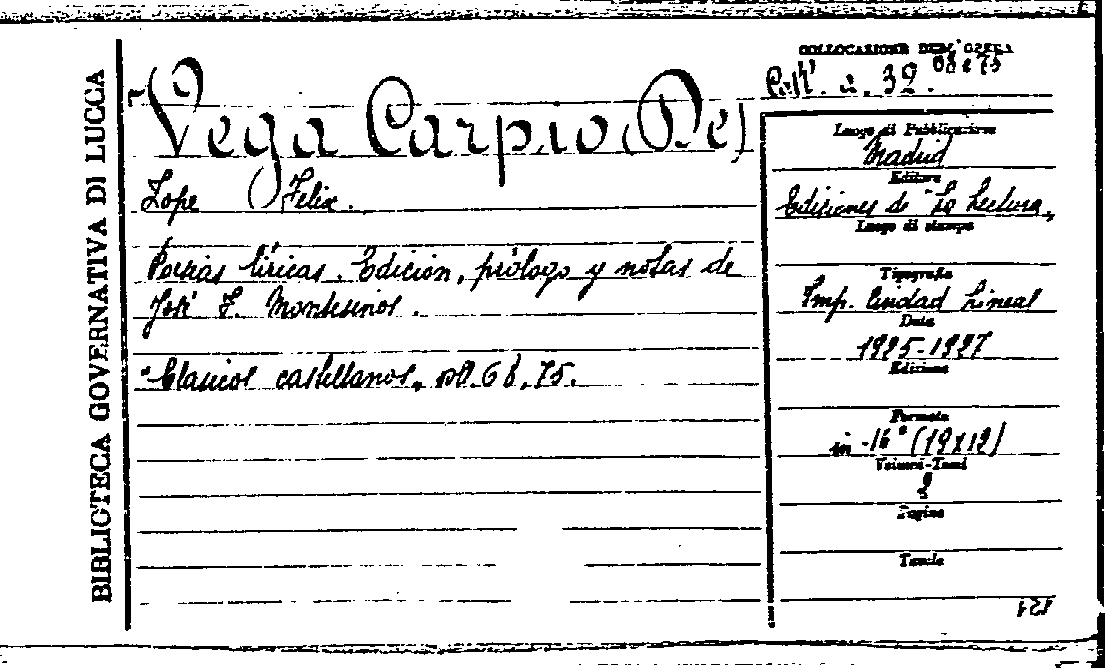 BIBLIOTECA GOVERNATIVA DI LUCCA
COLLOCAZIONE DELL'OPERA
68 e 75
a. 32.
Vega Carpio (De)
Lope (Felix.
Poesias líricas. Edición, prólogo y notas de
José F. Montesinos.
"Clasicos castellanos, 68, 75.
Luogo di Pubblicazione
Madrid
Editore
Ediciones de "La Lectura,,
Luogo di stampa
Tipografia
Imp. Ciudad Lineal
Data
1925-1927
Edizione
Formato
in-16° (19x12)
Volumi-Tomi
2
Pagine
Tavole
121